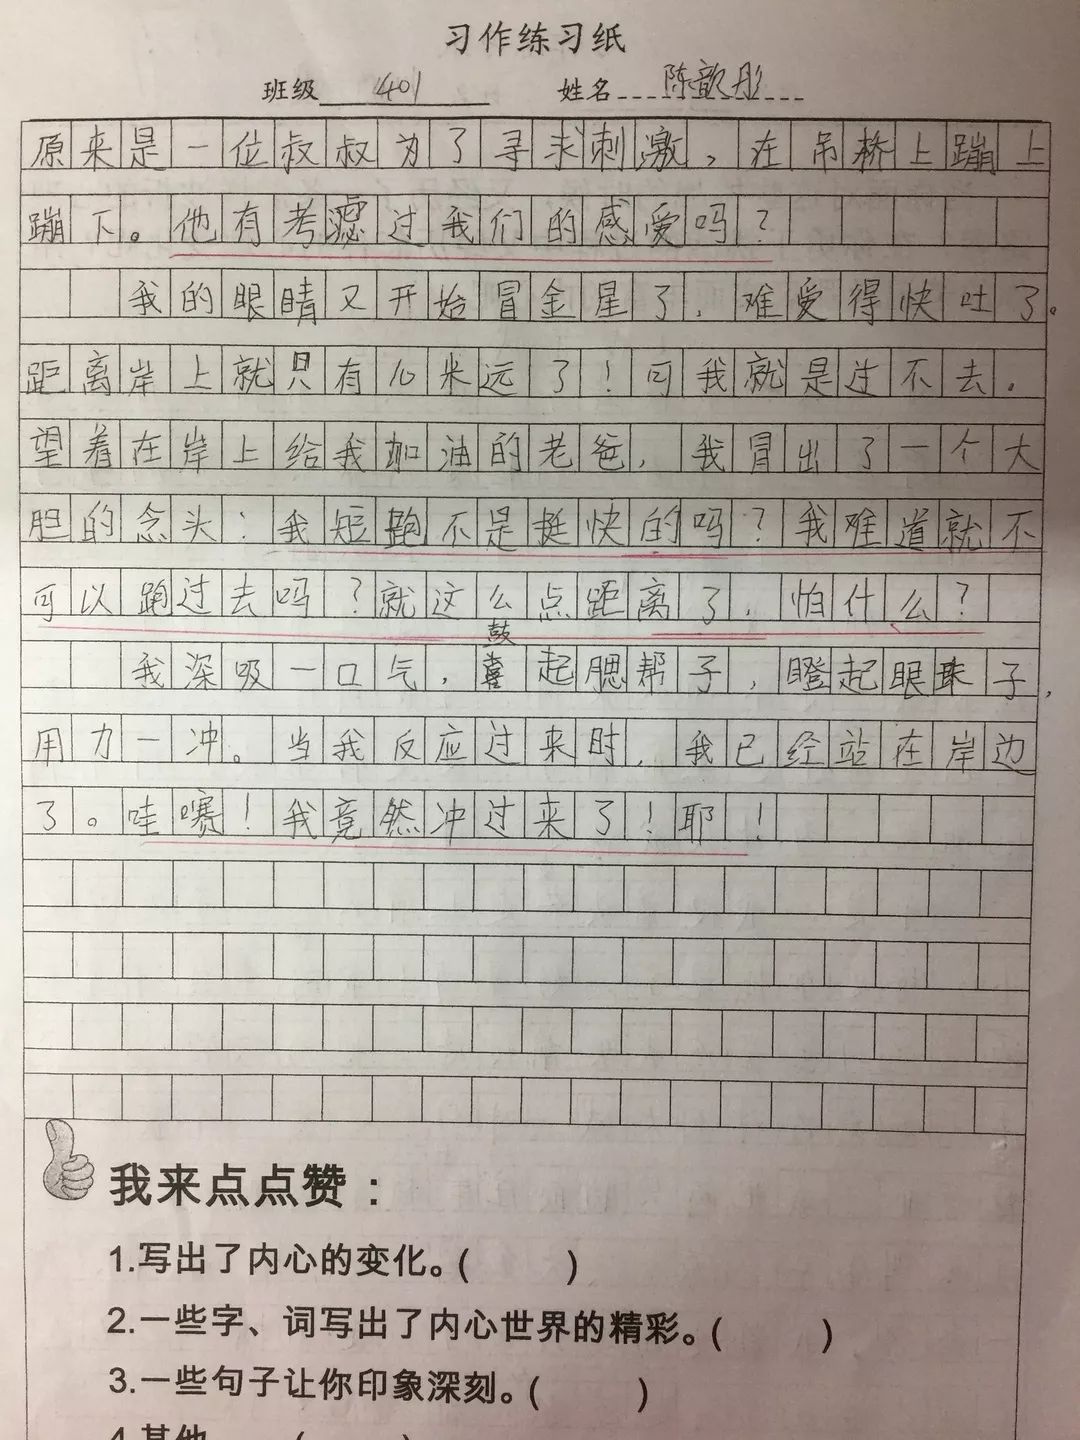 习作练习纸
班级 401 姓名 陈歆彤
原来是一位叔叔为了寻求刺激，在吊桥上蹦上
蹦下。他有考滤过我们的感受吗？
我的眼睛又开始冒金星了，难受得快吐了。
距离岸上就只有10米远了！可我就是过不去。
望着在岸上给我加油的老爸，我冒出了一个大
胆的念头：我短跑不是挺快的吗？我难道就不
可以跑过去吗？就这么点距离了，怕什么？
鼓
我深吸一口气，起腮帮子，瞪起眼珠子，
用力一冲。当我反应过来时，我已经站在岸边
了。哇赛！我竟然冲过来了！耶！
我来点点赞：
1.写出了内心的变化。( )
2.一些字、词写出了内心世界的精彩。( )
3.一些句子让你印象深刻。( )
4.其他 ( )